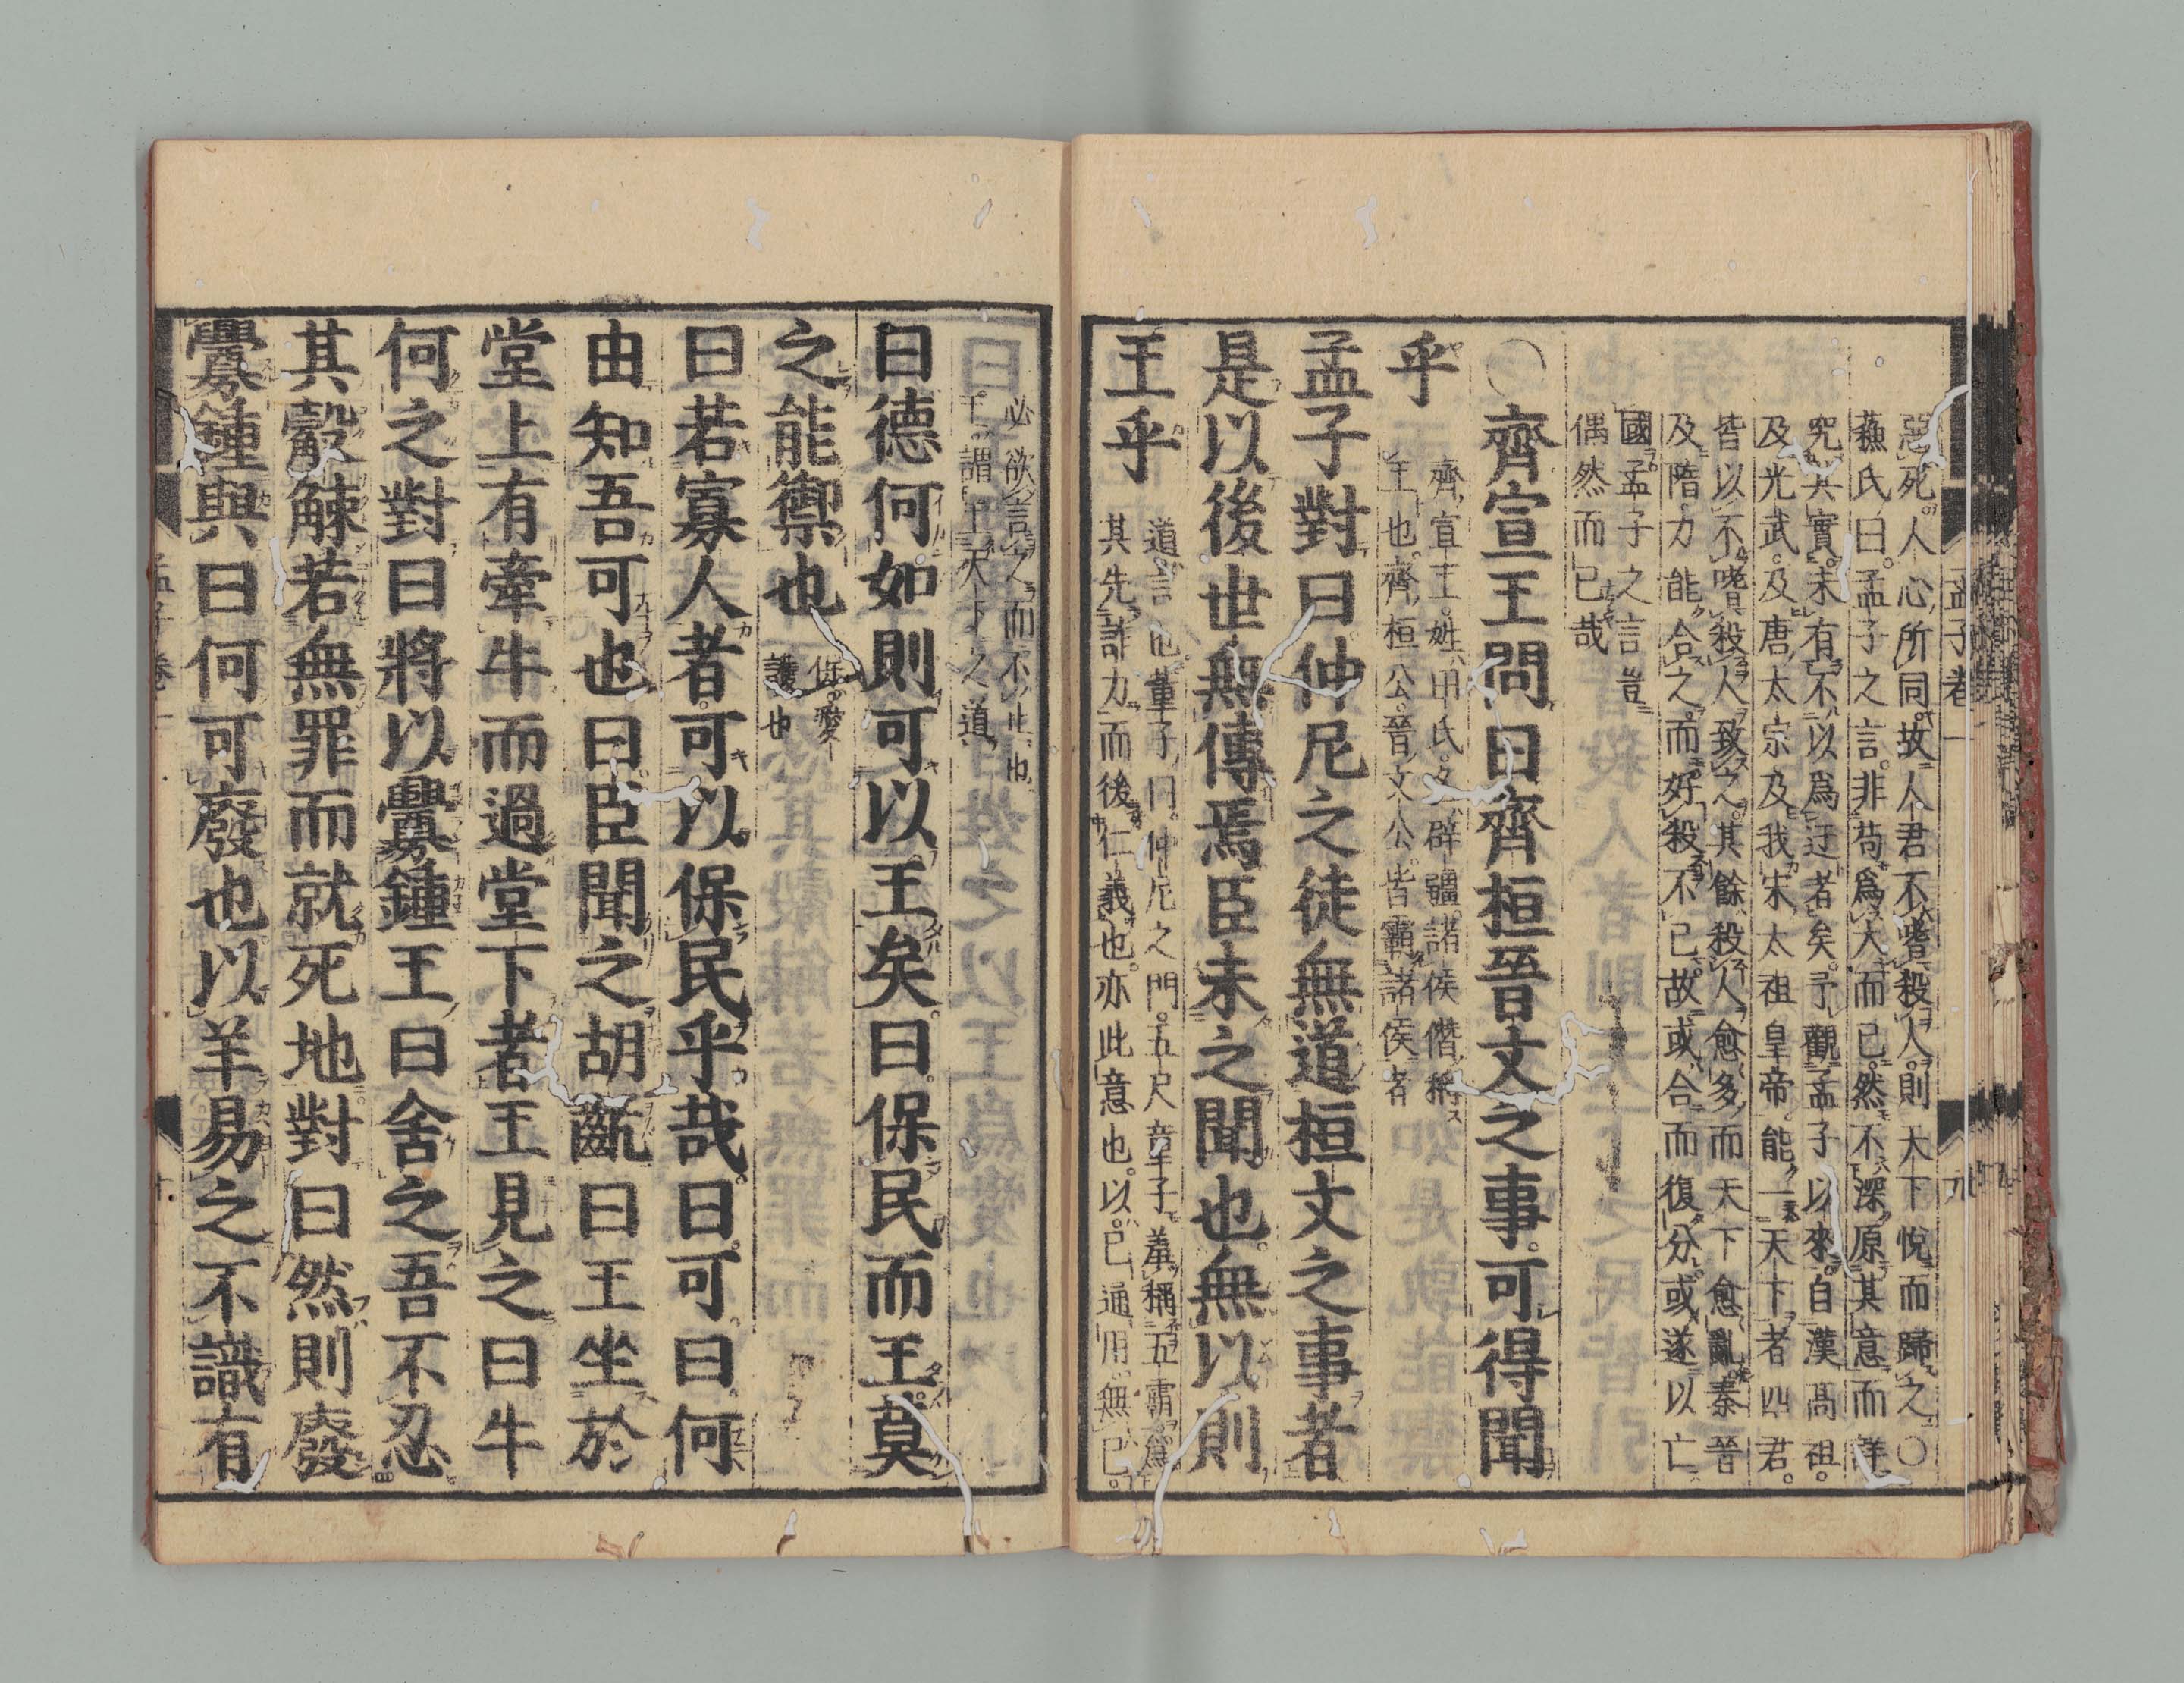 惡死人心所同故人君不嗜殺人則天下悅而歸之○
蘇氏曰孟子之言非苟爲大而已然不深原其意而詳
究其實未有不以爲迂者矣予觀孟子以來自漢高祖
及光武及唐太宗及我宋太祖皇帝能一天下者四君
皆以不嗜殺人致之其餘殺人愈多而天下愈亂秦晉
及隋力能合之而好殺不已故或合而復分或遂以亡
國孟子之言豈
偶然而已哉
○齊宣王問曰齊桓晉文之事可得聞
乎
齊宣王姓田氏名辟疆諸侯僭稱
王也齊桓公晉文公皆霸諸侯者
孟子對曰仲尼之徒無道桓文之事者
是以後世無傳焉臣未之聞也無以則
王乎
道言也董子曰仲尼之門五尺童子羞稱五霸爲
其先詐力而後仁義也亦此意也以已通用無已
必欲言之而不止也
王謂王天下之道
曰德何如則可以王矣曰保民而王莫
之能禦也
保愛
護也
曰若寡人者可以保民乎哉曰可曰何
由知吾可也曰臣聞之胡齕曰王坐於
堂上有牽牛而過堂下者王見之曰牛
何之對曰將以釁鍾王曰舍之吾不忍
其觳觫若無罪而就死地對曰然則廢
釁鍾與曰何可廢也以羊易之不識有
孟子卷一